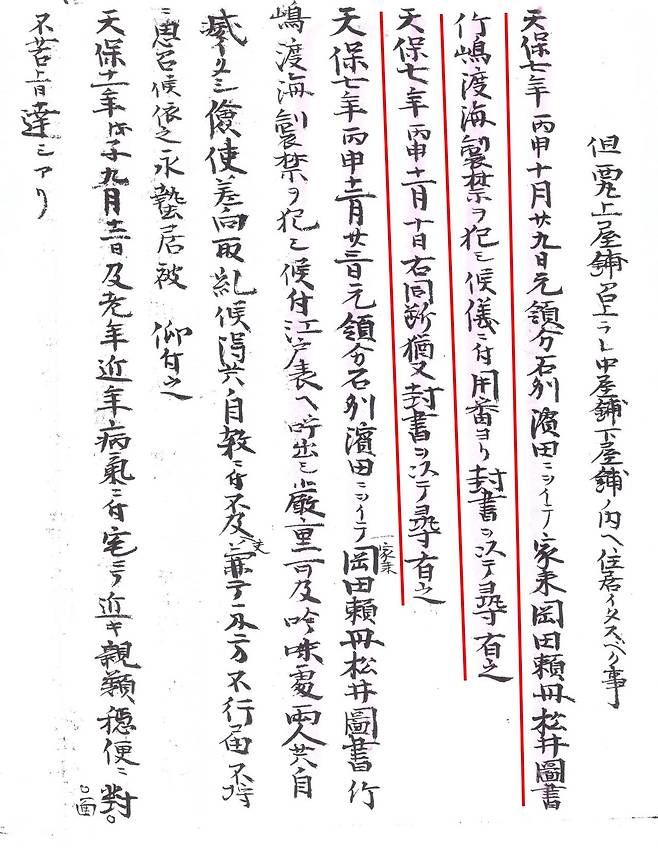 但罷上屋鋪召上ラレ中屋鋪下屋鋪ノ内ヘ住居イタスベク事
天保七年丙申十月廿九日元領分石州濱田ニヲイテ家来岡田頼母松井圖書
竹嶋渡海製禁ヲ犯シ候儀ニ付用番ヨリ封書ヲ以テ尋有之
天保七年丙申十二月十日右同断猶又封書ヲ以テ尋有之
天保七年丙申十二月廿三日元領分石州濱田ニヲイテ家来岡田頼母松井圖書竹
嶋渡海製禁ヲ犯シ候付江戸表ヘ呼出シ嚴重可及吟味處両人共自
滅イタシ儉使差向取糺候得共自殺ニ付不及 不行届不
ニ思召候依之永蟄居被 仰付之
天保十一年庚子九月十二日及老年近年病氣ニ付宅ニテ近キ親類穏便ニ對。
。面
不苦旨達シアリ